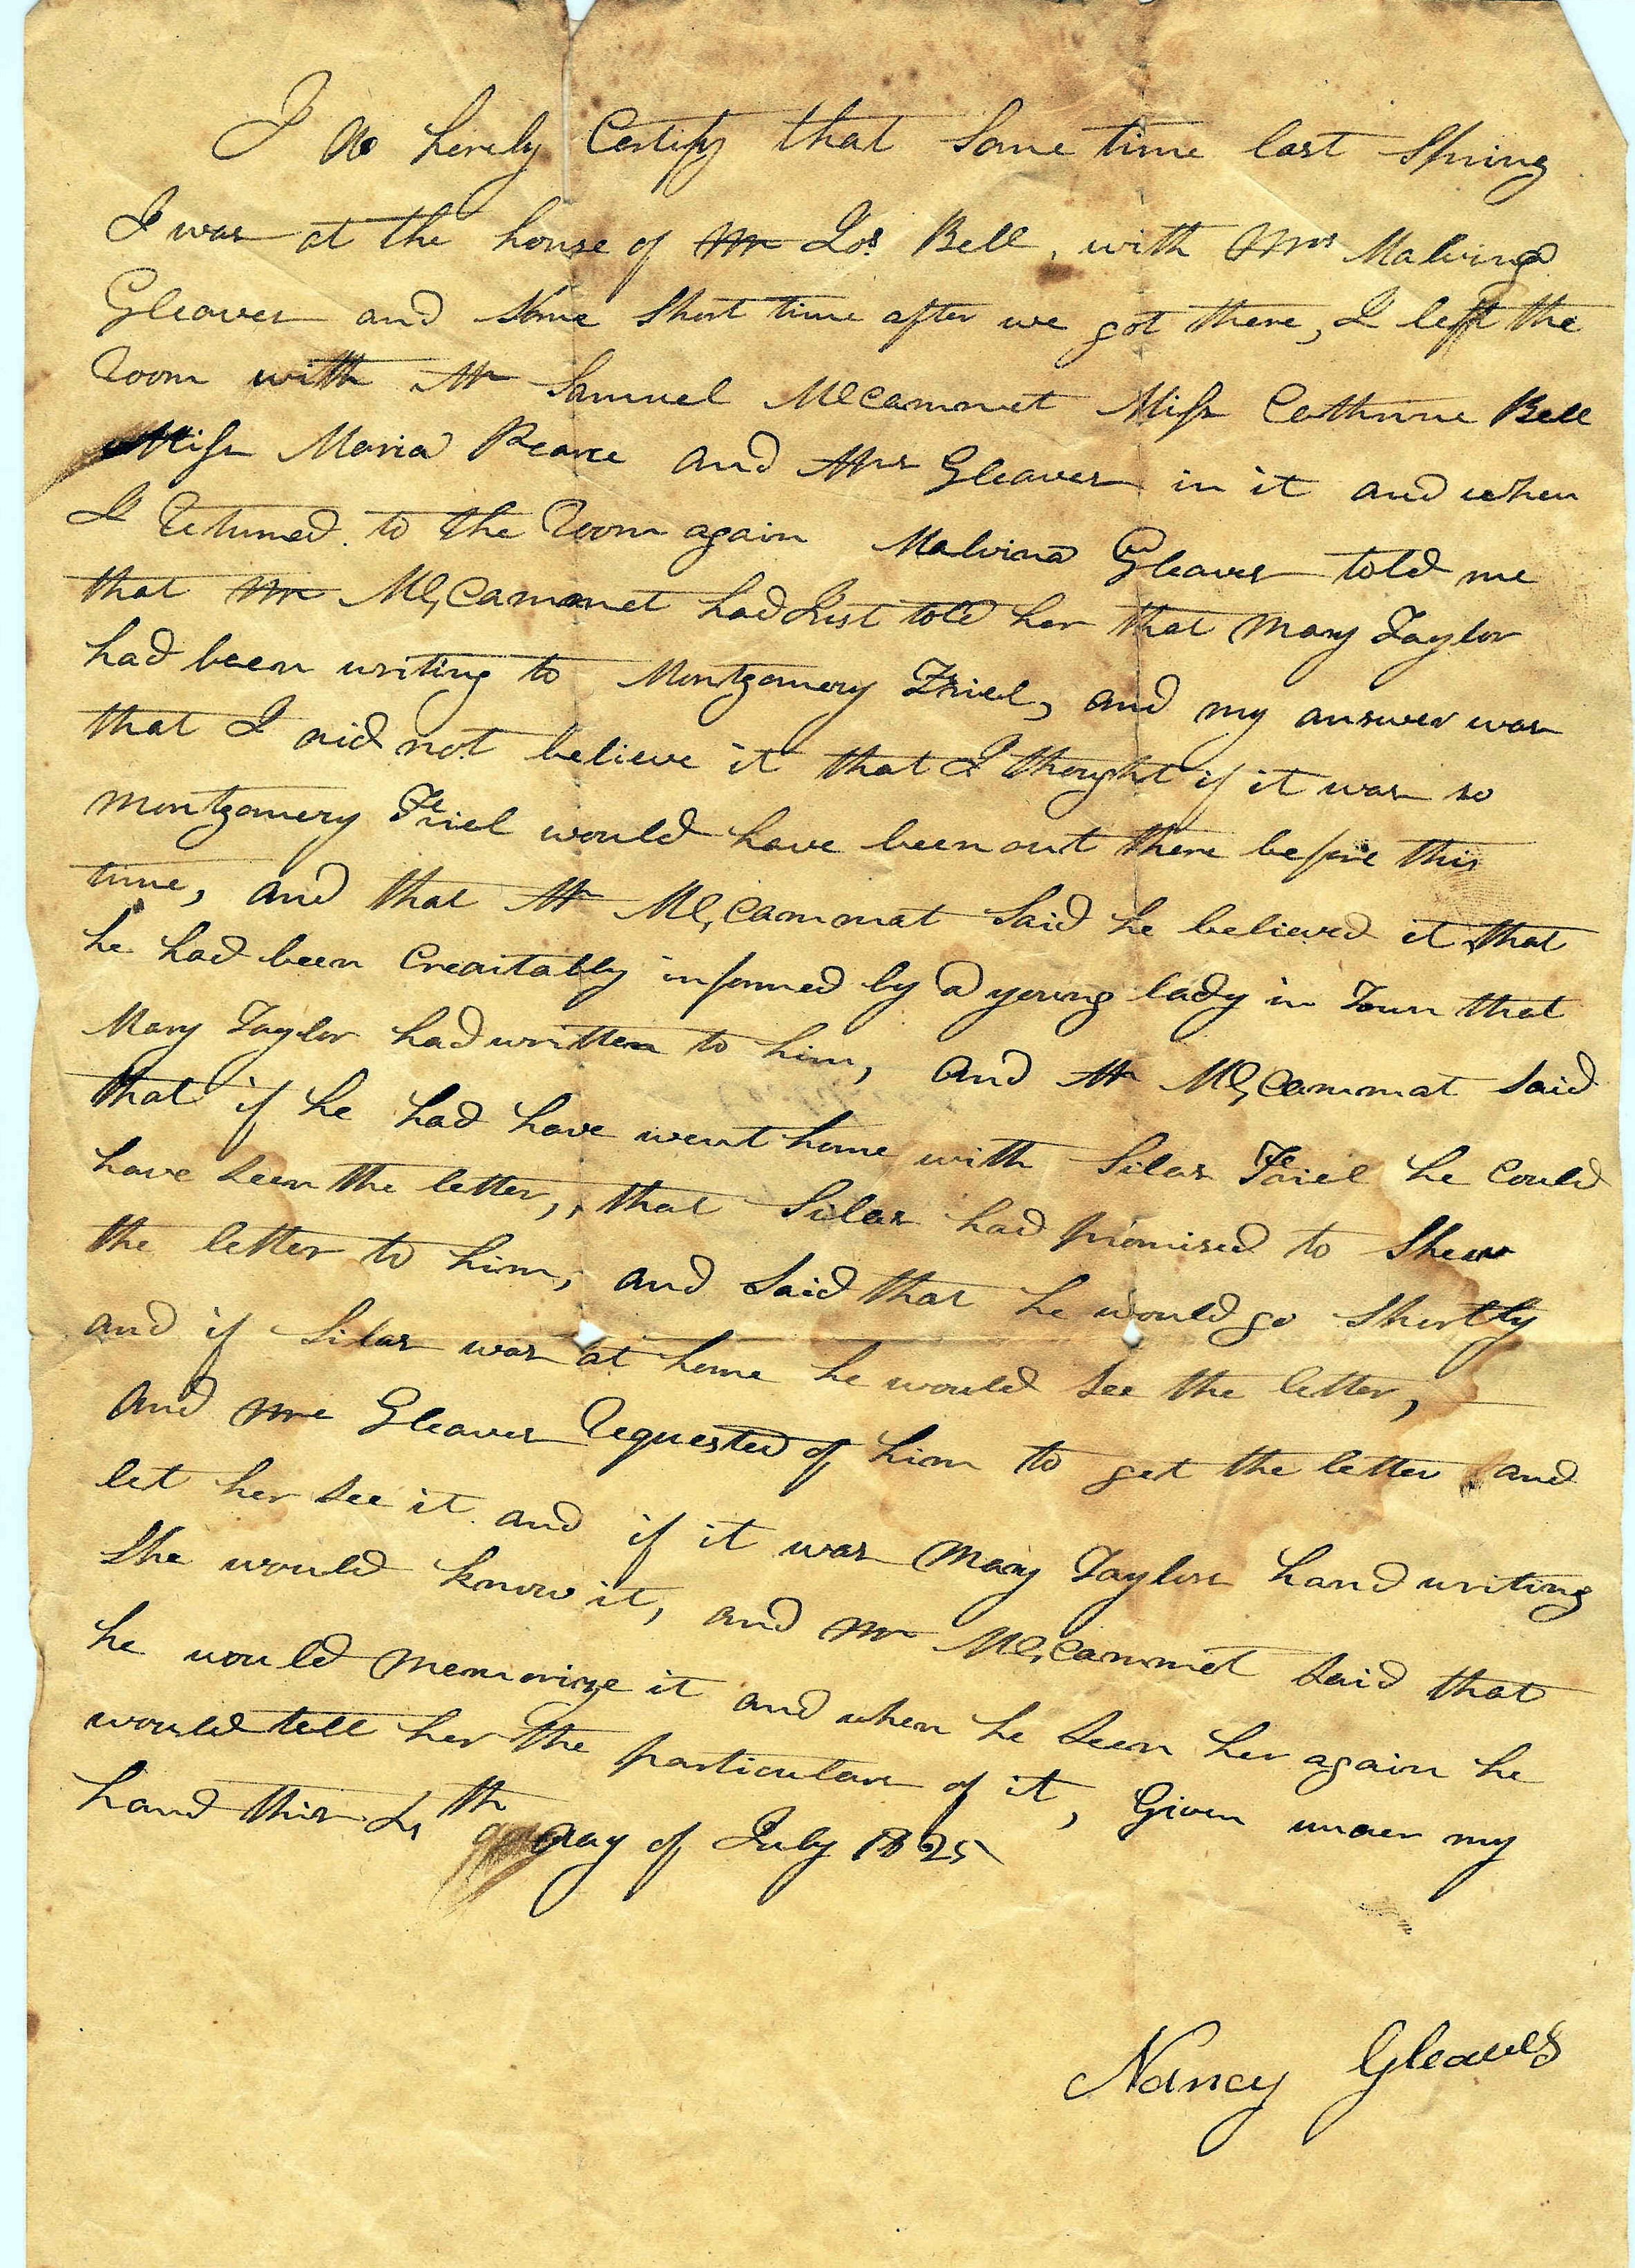 I do hereby Certify that Some time last Spring
I was at the house of Mr Jos. Bell, with Mrs Malvina
Gleaves and Some Short time after we got there, I left the
Room with Mr Samuel McCammet Miss Cathrine Bell
Miss Maria Pearce and Mrs Gleaves in it and when
I Returned to the Room again Malvina Gleaves told me
that Mr McCammet had Just told her that Mary Taylor
had been writing to Montgomery Friel, and my answer was
that I did not believe it that I thought if it was so
Montgomery Friel would have been out there before this
time, and that Mr McCammat Said he believed it that
he had been Creaitably informed by a young lady in Town that
Mary Taylor had written to him, and Mr McCammat Said
that if he had have went home with Silas Friel he Could
have Seen the letter, that Silas had promised to Shew
the letter to him, and Said that he would go Shortly
and if Silas was at home he would See the letter,
and Mrs Gleaves Requested of him to get the letter and
let her See it and if it was Mary Taylors hand writing
She would know it, and Mr McCammet Said that
he would memorize it and when he Seen her again he
would tell her the particulars of it, Given under my
hand this 4th day of July 1825
Nancy Gleaves